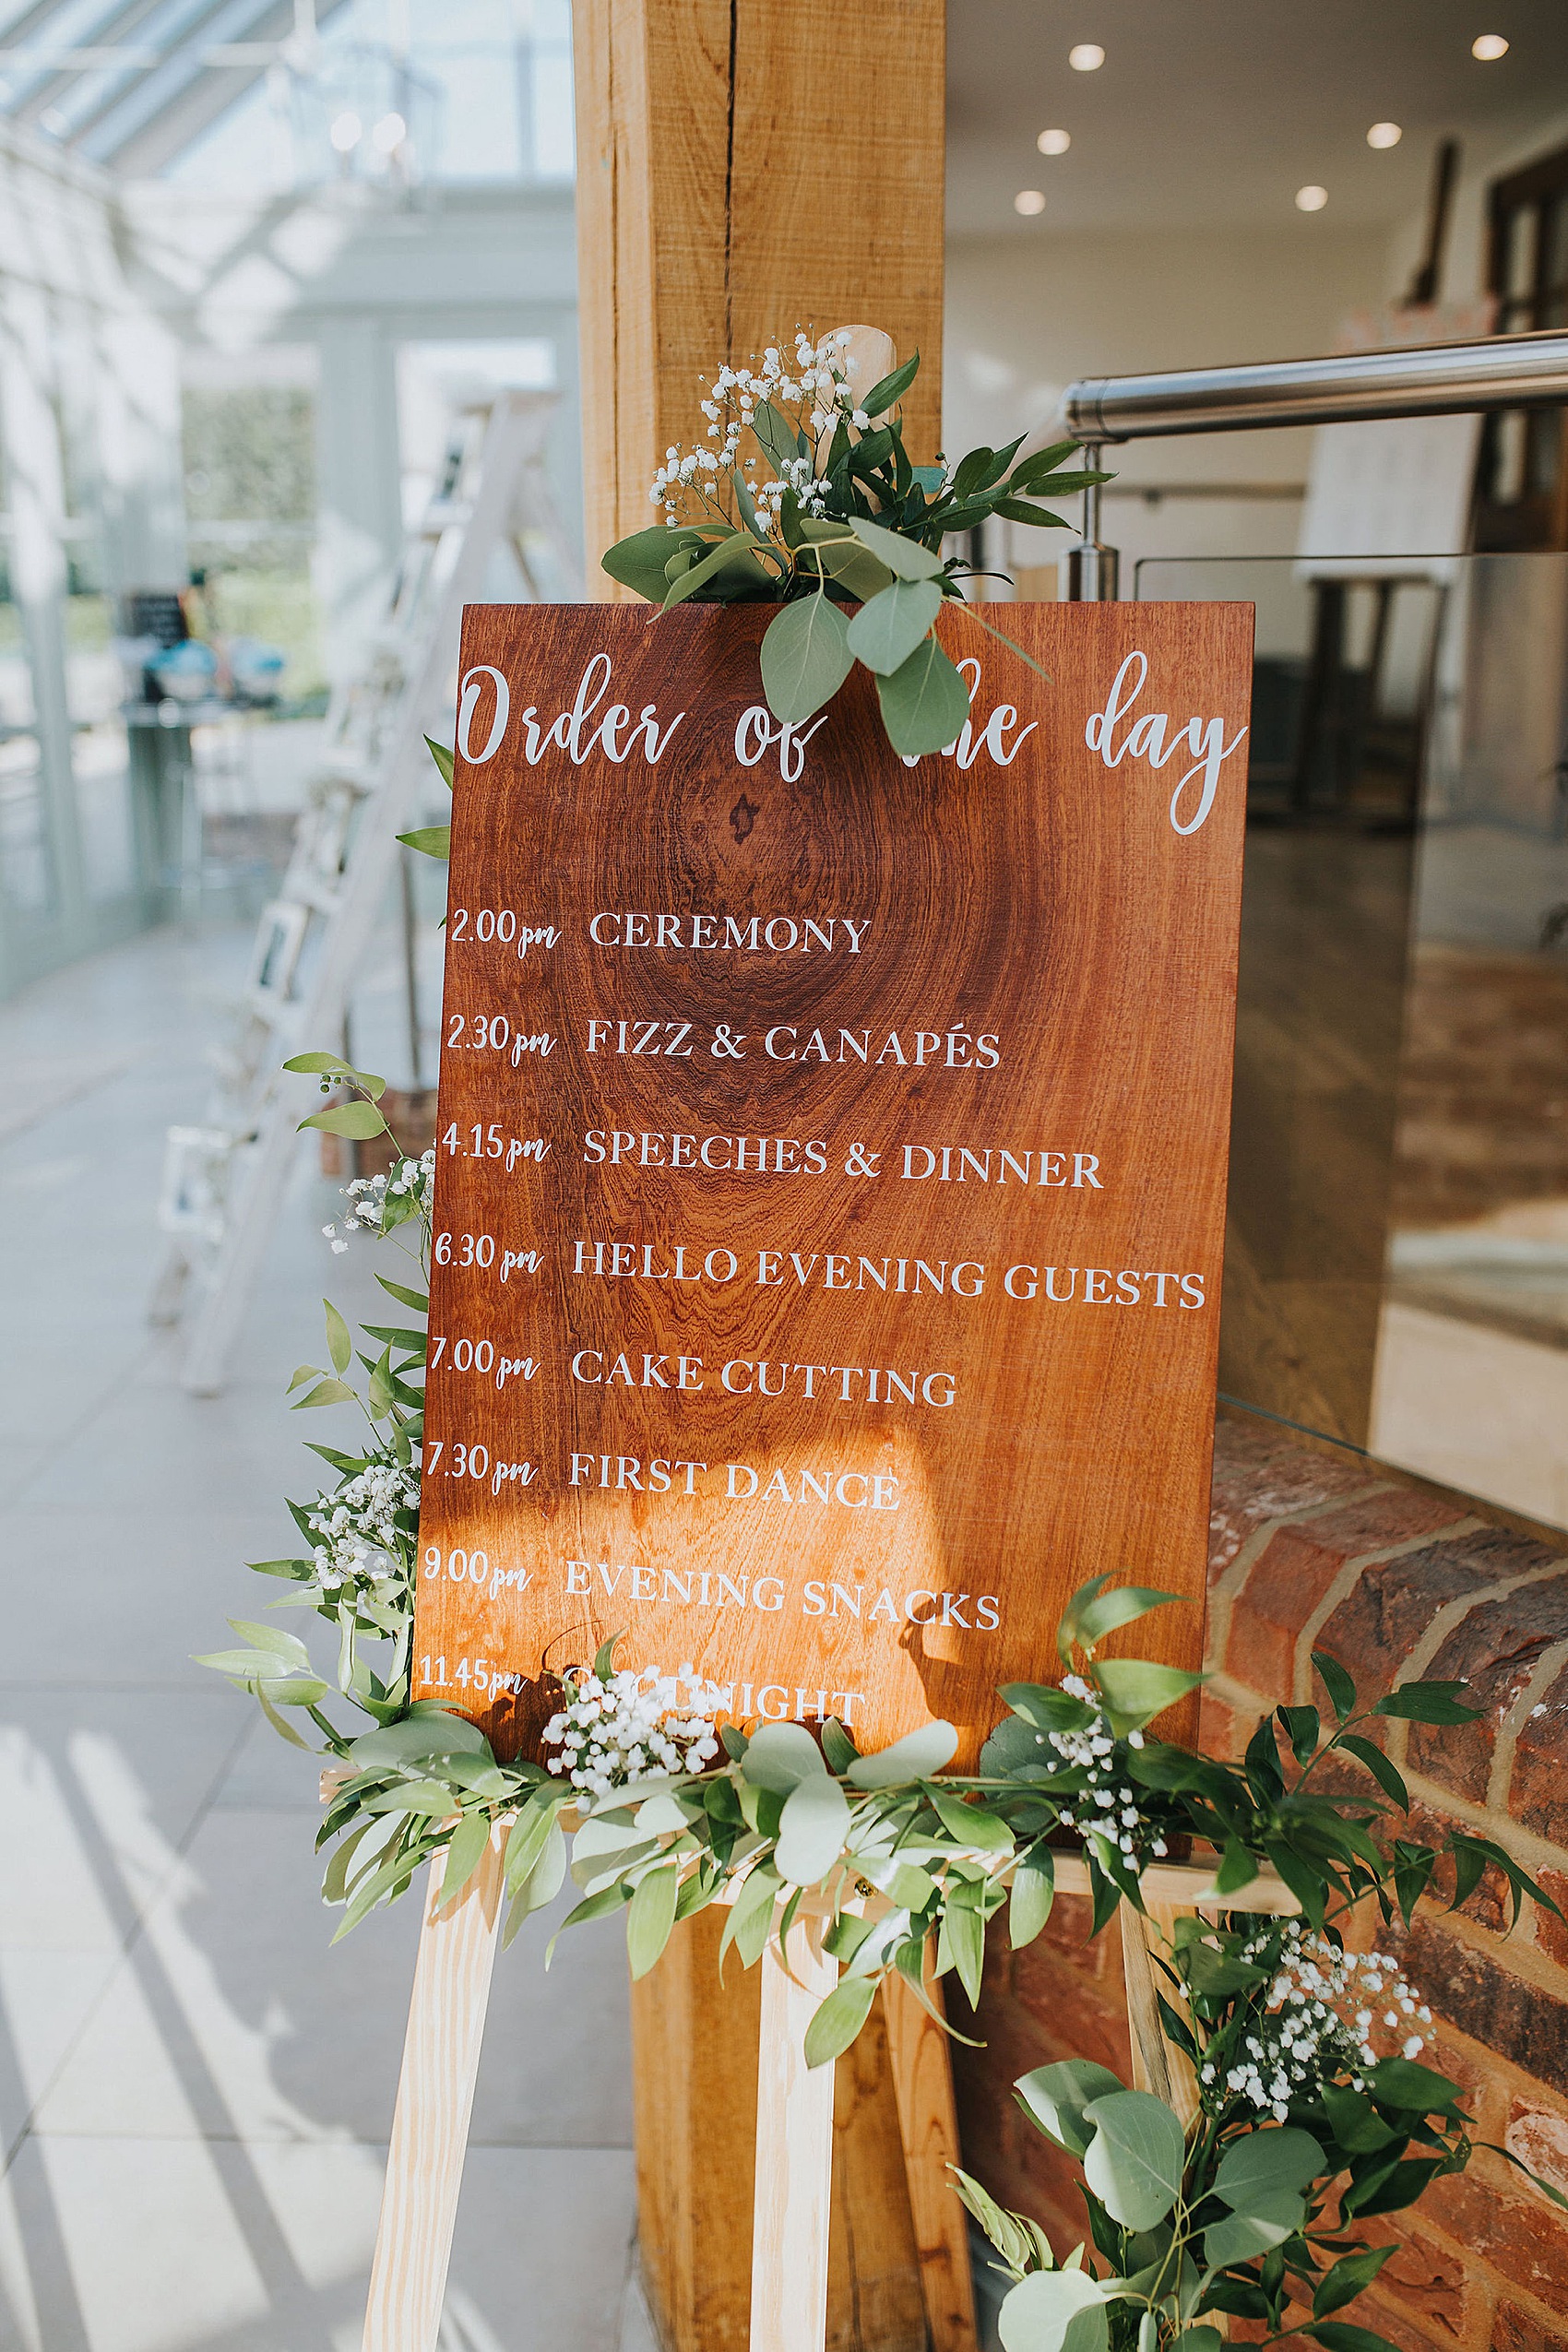 Order of the day
2.00pm CEREMONY
2.30pm FIZZ & CANAPÉS
4.15pm SPEECHES & DINNER
6.30pm HELLO EVENING GUESTS
7.00pm CAKE CUTTING
7.30pm FIRST DANCE
9.00pm EVENING SNACKS
11.45pm GOODNIGHT